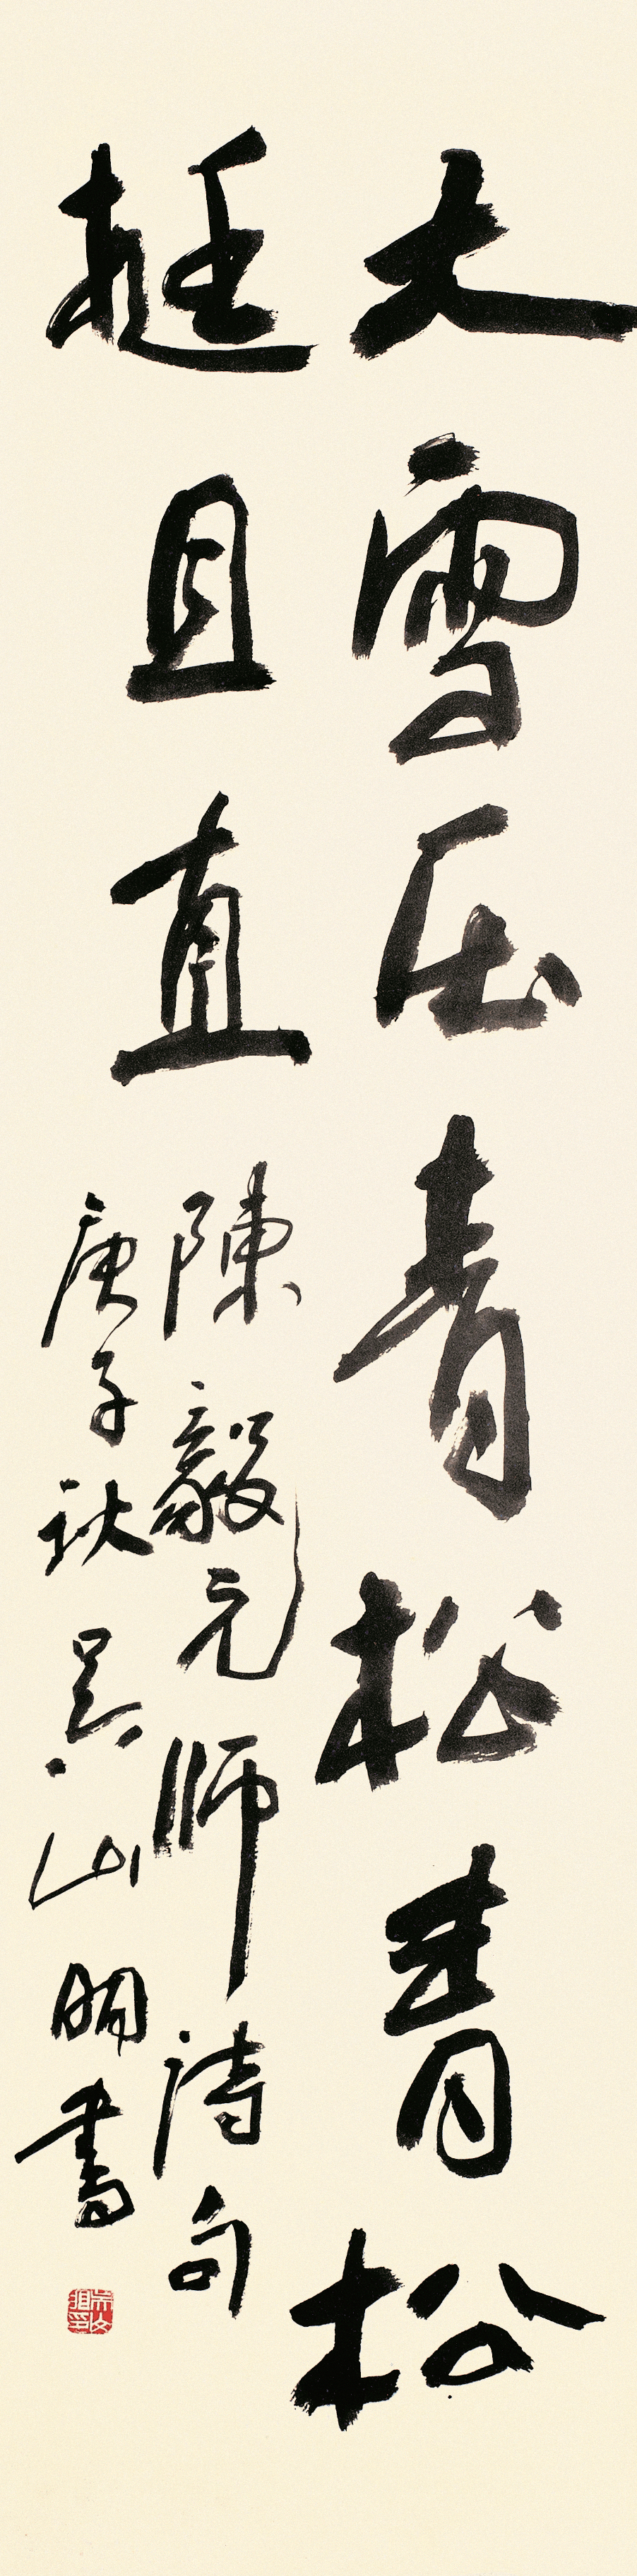 大雪压青松青松
挺且直
陳毅元师詩句
庚子秋吴山明書